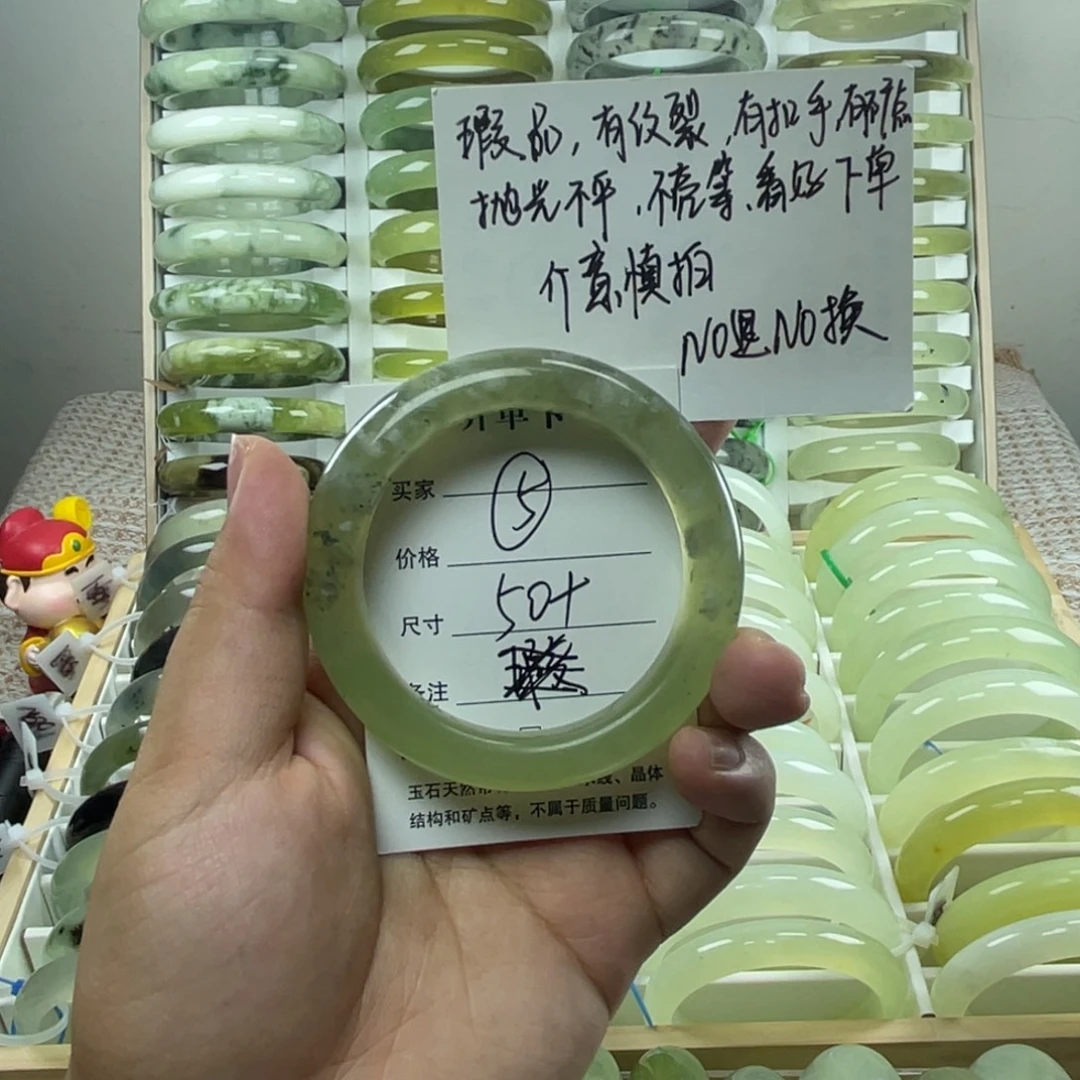 瑕品,有纹裂,有扣手,有矿点
抛光不平,不亮等,看好下单
介意慎拍
NO退NO换
开单卡
买家 ⑤
价格
尺寸 50+
备注
玉石天然
线、晶体
结构和矿点等,不属于质量问题。